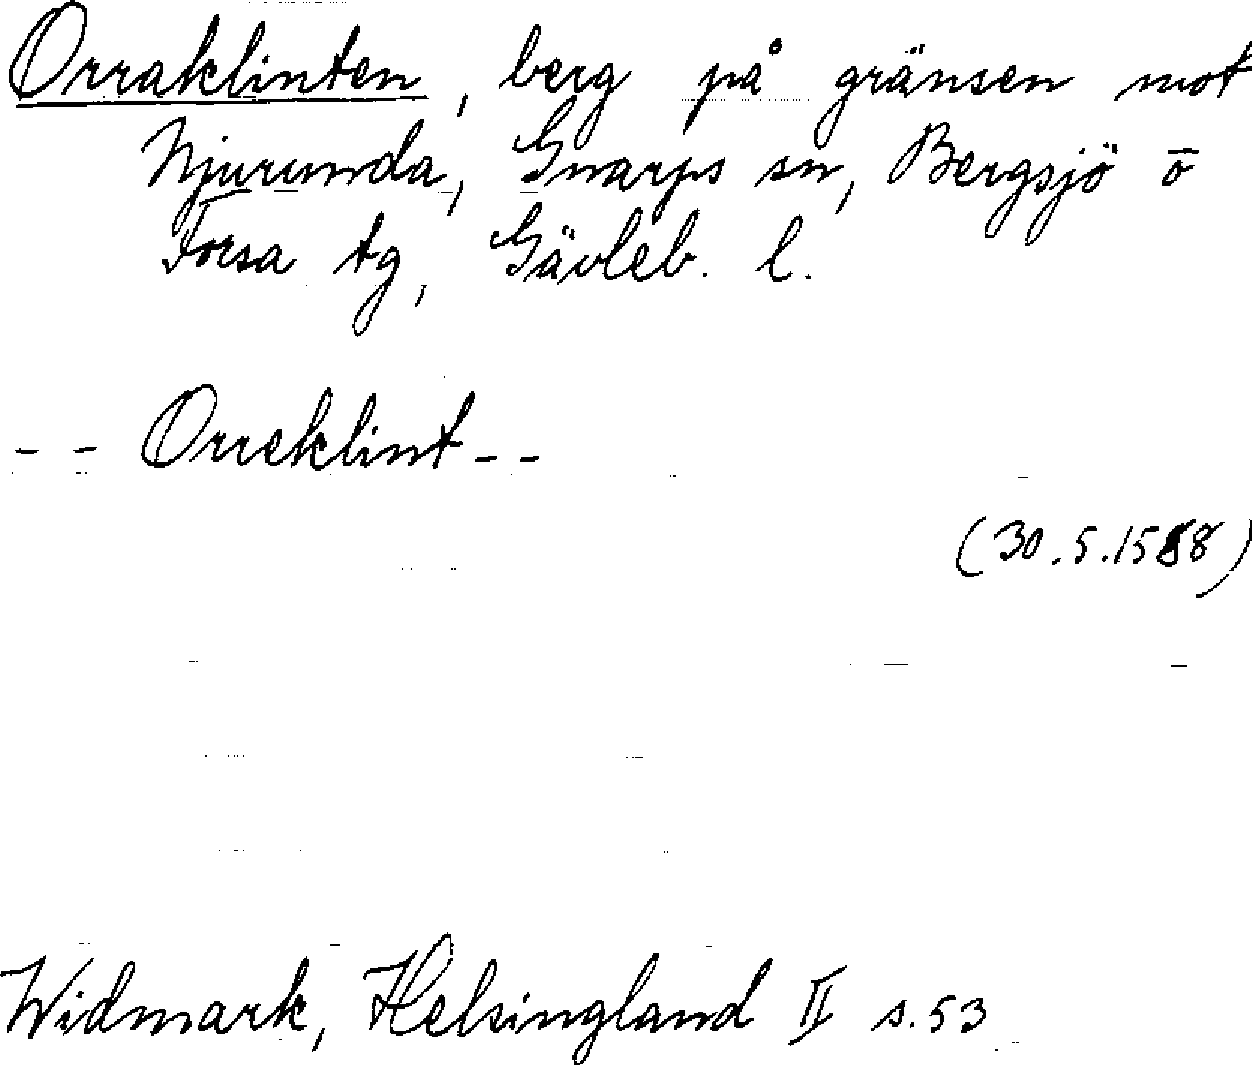 Orraklinten, berg på gränsen mot
Njurunda, Gnarps sn, Bergsjö o
Forsa tg, Gävleb. l.
-- Orreklint --
(30.5.1588)
Widmark, Helsingland II s. 53